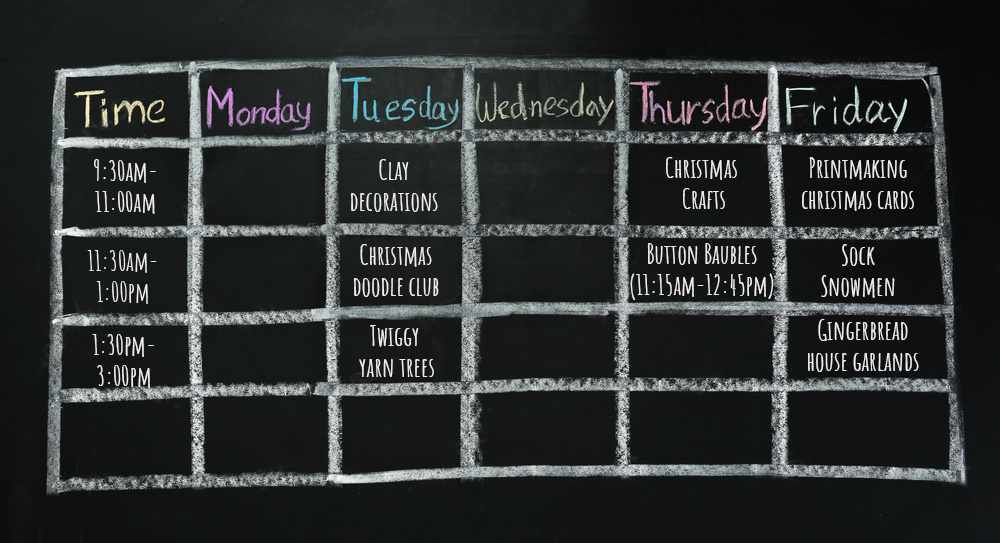 Time Monday Tuesday Wednesday Thursday Friday
9:30AM-
11:00AM
CLAY
DECORATIONS
CHRISTMAS
CRAFTS
PRINTMAKING
CHRISTMAS CARDS
11:30AM-
1:00PM
CHRISTMAS
DOODLE CLUB
BUTTON BAUBLES
(11:15AM-12:45PM)
SOCK
SNOWMEN
1:30PM-
3:00PM
TWIGGY
YARN TREES
GINGERBREAD
HOUSE GARLANDS